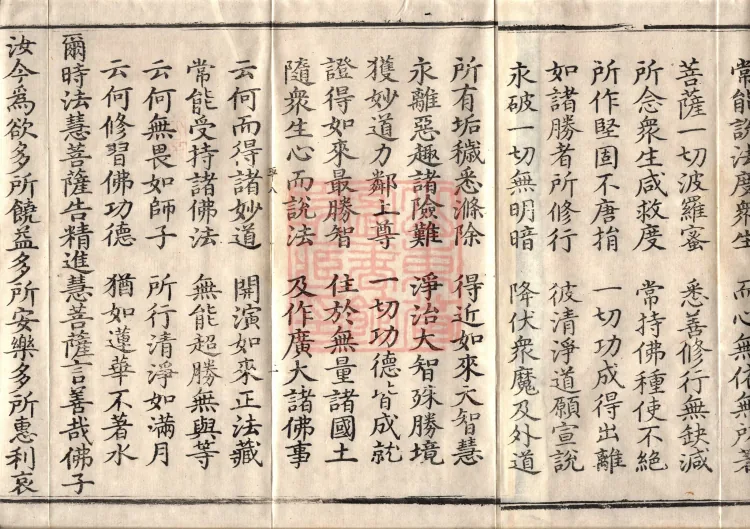 常能說法度衆生 而心無依無所著
菩薩一切波羅蜜 悉善修行無缺減
所念衆生咸救度 常持佛種使不絕
所作堅固不唐捐 一切功成得出離
如諸勝者所修行 彼清淨道願宣說
永破一切無明暗 降伏衆魔及外道
所有垢穢悉滌除 得近如來大智慧
永離惡趣諸險難 淨治大智殊勝境
獲妙道力鄰上尊 一切功德皆成就
證得如來最勝智 住於無量諸國土
隨衆生心而說法 及作廣大諸佛事
云何而得諸妙道 開演如來正法藏
常能受持諸佛法 無能超勝無與等
云何無畏如師子 所行清淨如滿月
云何修習佛功德 猶如蓮華不著水
爾時法慧菩薩告精進慧菩薩言善哉佛子
汝今爲欲多所饒益多所安樂多所惠利哀